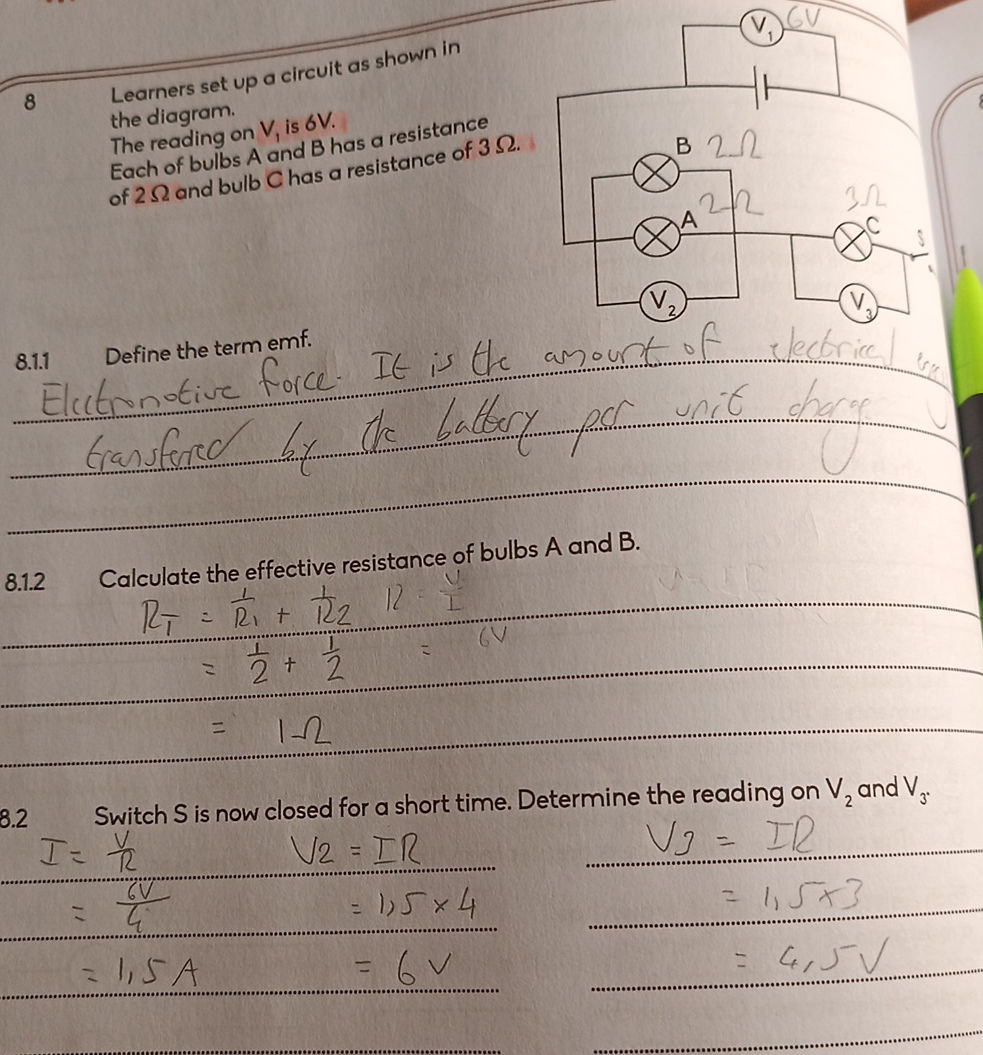 V₁ 6V
8 Learners set up a circuit as shown in
the diagram.
The reading on V₁ is 6V.
Each of bulbs A and B has a resistance
of 2 Ω and bulb C has a resistance of 3 Ω.
B 2Ω
A 2Ω
3Ω
C
S
V₂
V₃
8.1.1 Define the term emf.
Electromotive force. It is the amount of electrical
transferred by the battery per unit charge
8.1.2 Calculate the effective resistance of bulbs A and B.
R_T = 1/R₁ + 1/R₂ R = V/I
= 1/2 + 1/2 = 6V
= 1Ω
8.2 Switch S is now closed for a short time. Determine the reading on V₂ and V₃.
I = V/R V2 = IR V3 = IR
= 6V/4 = 1,5 × 4 = 1,5 × 3
= 1,5 A = 6 V = 4,5 V